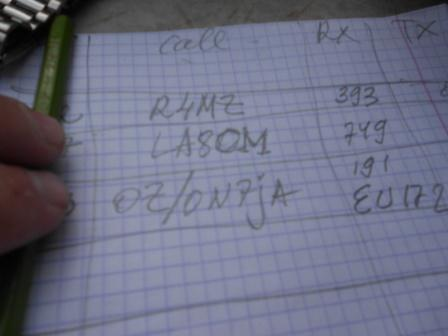 Call RX TX
R4MZ 393
LA8OM 749
191
OZ/ON7jA EU172